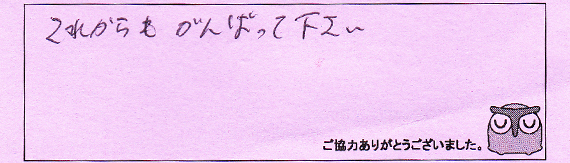 これからも がんばって下さい
ご協力ありがとうございました。